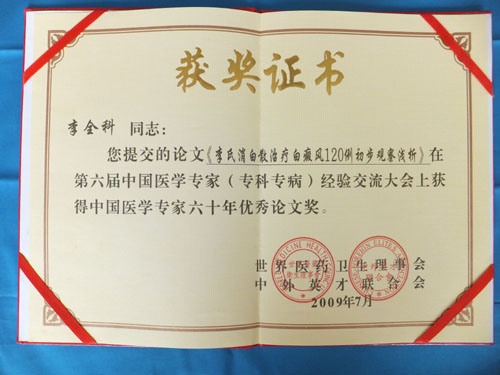 获奖证书
李全科 同志：
您提交的论文《李氏消白散治疗白癜风120例初步观察浅析》在
第六届中国医学专家（专科专病）经验交流大会上获
得中国医学专家六十年优秀论文奖。
世界医药卫生理事会
中外英才联合会
2009年7月